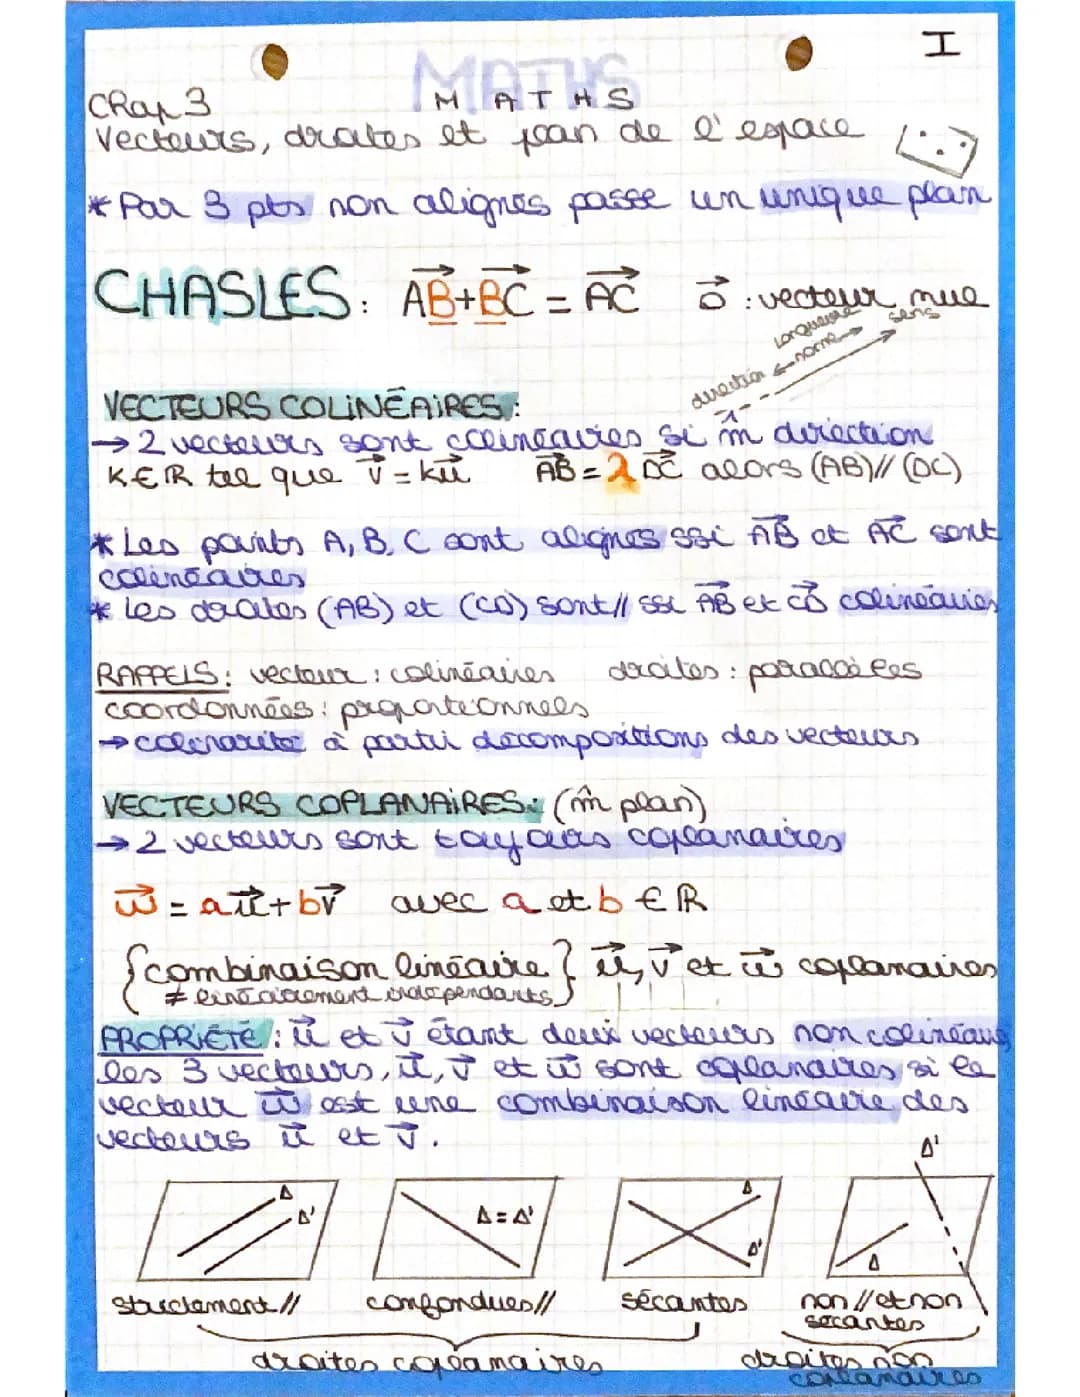 I
MATHS
MATHS
Chap 3
Vecteurs, droites et plan de l'espace
* Par 3 pts non alignés passe un unique plan
CHASLES: AB+BC = AC    0 : vecteur nul
longueur
sens
direction ← norme →
VECTEURS COLINÉAIRES :
→ 2 vecteurs sont colinéaires si m̂ direction
K∈ℝ tel que v = ku    AB = λDC alors (AB)// (DC)
* Les points A, B, C sont alignés ssi AB et AC sont
colinéaires
* Les droites (AB) et (CD) sont // ssi AB et CD colinéaires
RAPPELS : vecteur : colinéaires    droites : parallèles
coordonnées : proportionnels
→ colinarité à partir décompositions des vecteurs
VECTEURS COPLANAIRES : (m̂ plan)
→ 2 vecteurs sont toujours coplanaires
w = au + bv    avec a et b ∈ ℝ
{combinaison linéaire} u, v et w coplanaires
≠ linéairement indépendants
PROPRIÉTÉ : u et v étant deux vecteurs non colinéaires
les 3 vecteurs, u, v et w sont coplanaires si le
vecteur w est une combinaison linéaire des
vecteurs u et v.
Δ'
Δ    Δ'
Δ = Δ'
Δ    Δ'
Δ
strictement //    confondues //    sécantes    non // et non
sécantes
droites coplanaires    droites non
coplanaires